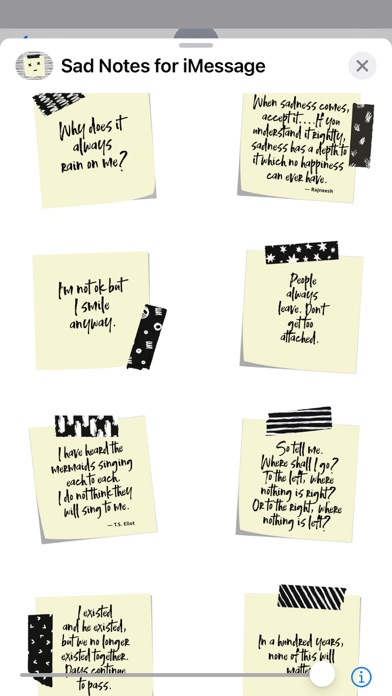 Sad Notes for iMessage
Why does it
always
rain on me?
When sadness comes,
accept it....If you
understand it rightly,
sadness has a depth to
it which no happiness
can ever have.
— Rajneesh
I'm not ok but
I smile
anyway.
People
always
leave. Don't
get too
attached.
I have heard the
mermaids singing
each to each.
I do not think they
will sing to me.
— T.S. Eliot
So tell me.
Where shall I go?
To the left, where
nothing is right?
Or to the right, where
nothing is left?
I existed
and he existed,
but we no longer
existed together.
Days continue
to pass.
In a hundred years,
none of this will